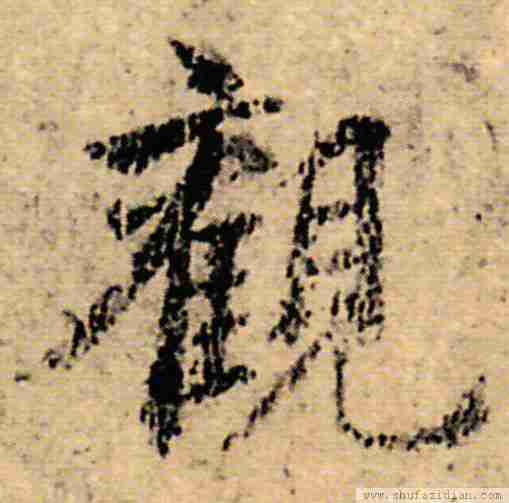 觀
www.shufazidian.com